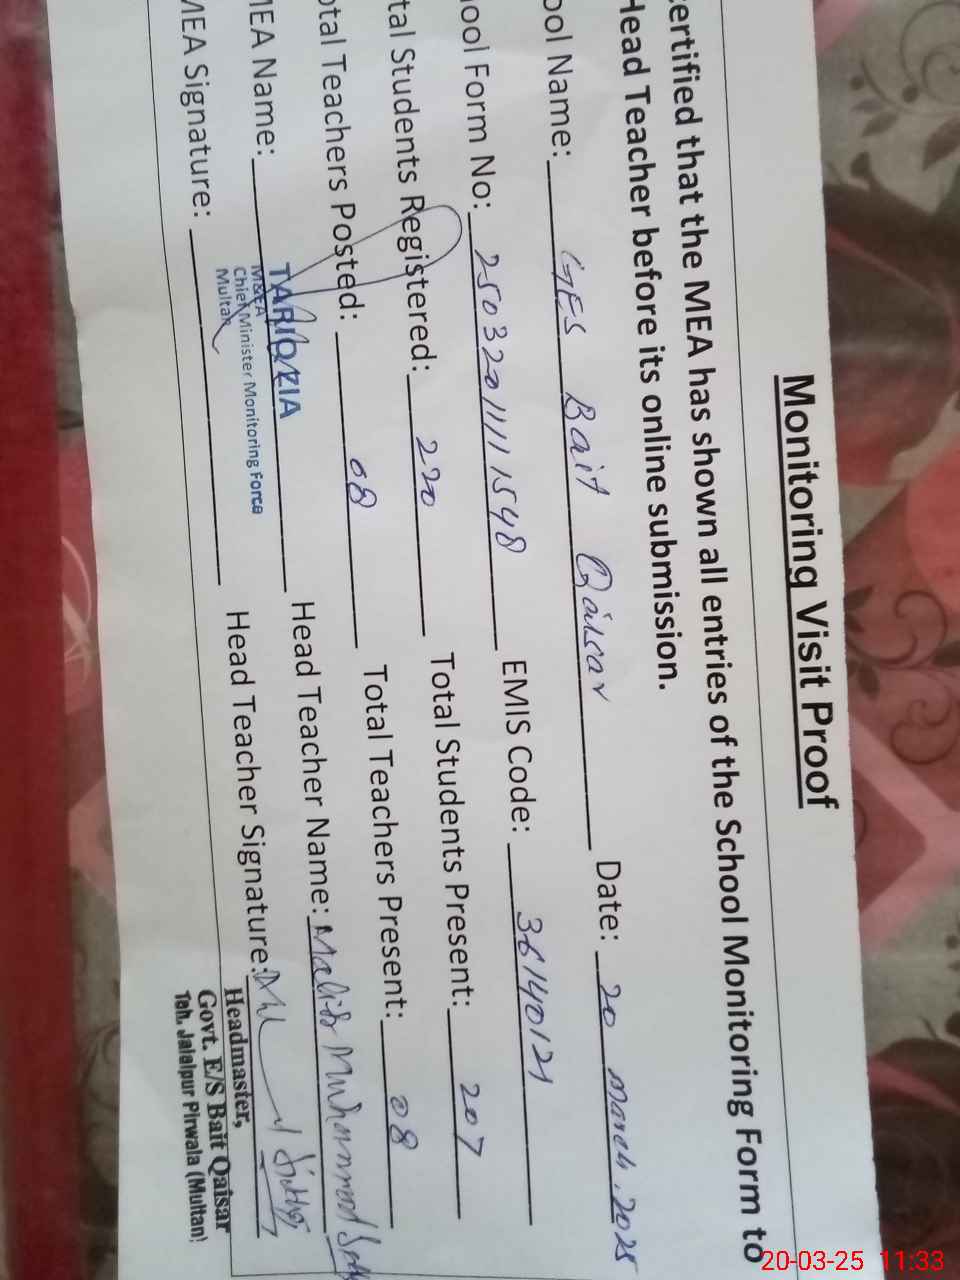 Monitoring Visit Proof
ertified that the MEA has shown all entries of the School Monitoring Form to
Head Teacher before its online submission.
ool Name: GES Bait Qaisar Date: 20 march, 2025
ool Form No: 25032011111548 EMIS Code: 36140121
tal Students Registered: 220 Total Students Present: 207
otal Teachers Posted: 08 Total Teachers Present: 08
MEA Name: TARIQ ZIA Head Teacher Name: Malik Muhammad
M&EA
Chief Minister Monitoring Force
Multan
MEA Signature: Head Teacher Signature:
Headmaster,
Govt. E/S Bait Qaisar
Teh. Jalalpur Pirwala (Multan)
20-03-25 11:33